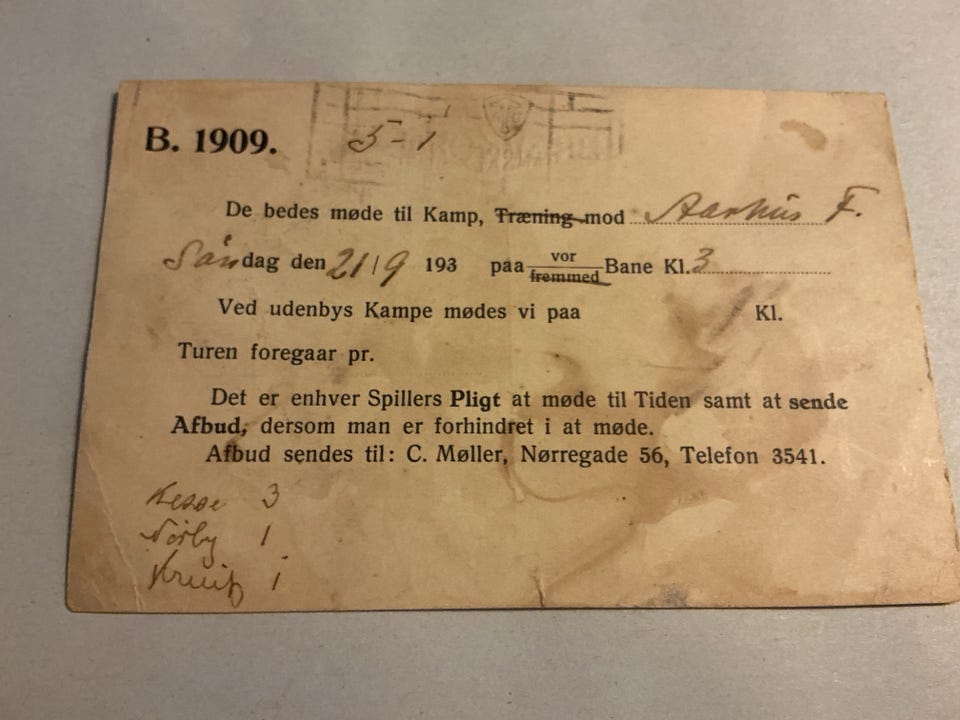 B. 1909. 5-1
De bedes møde til Kamp, Træning mod Aarhus F.
Søndag den 21/9 193 paa vor Bane Kl. 3
fremmed
Ved udenbys Kampe mødes vi paa Kl.
Turen foregaar pr.
Det er enhver Spillers Pligt at møde til Tiden samt at sende
Afbud, dersom man er forhindret i at møde.
Afbud sendes til: C. Møller, Nørregade 56, Telefon 3541.
3
Nørby 1
1